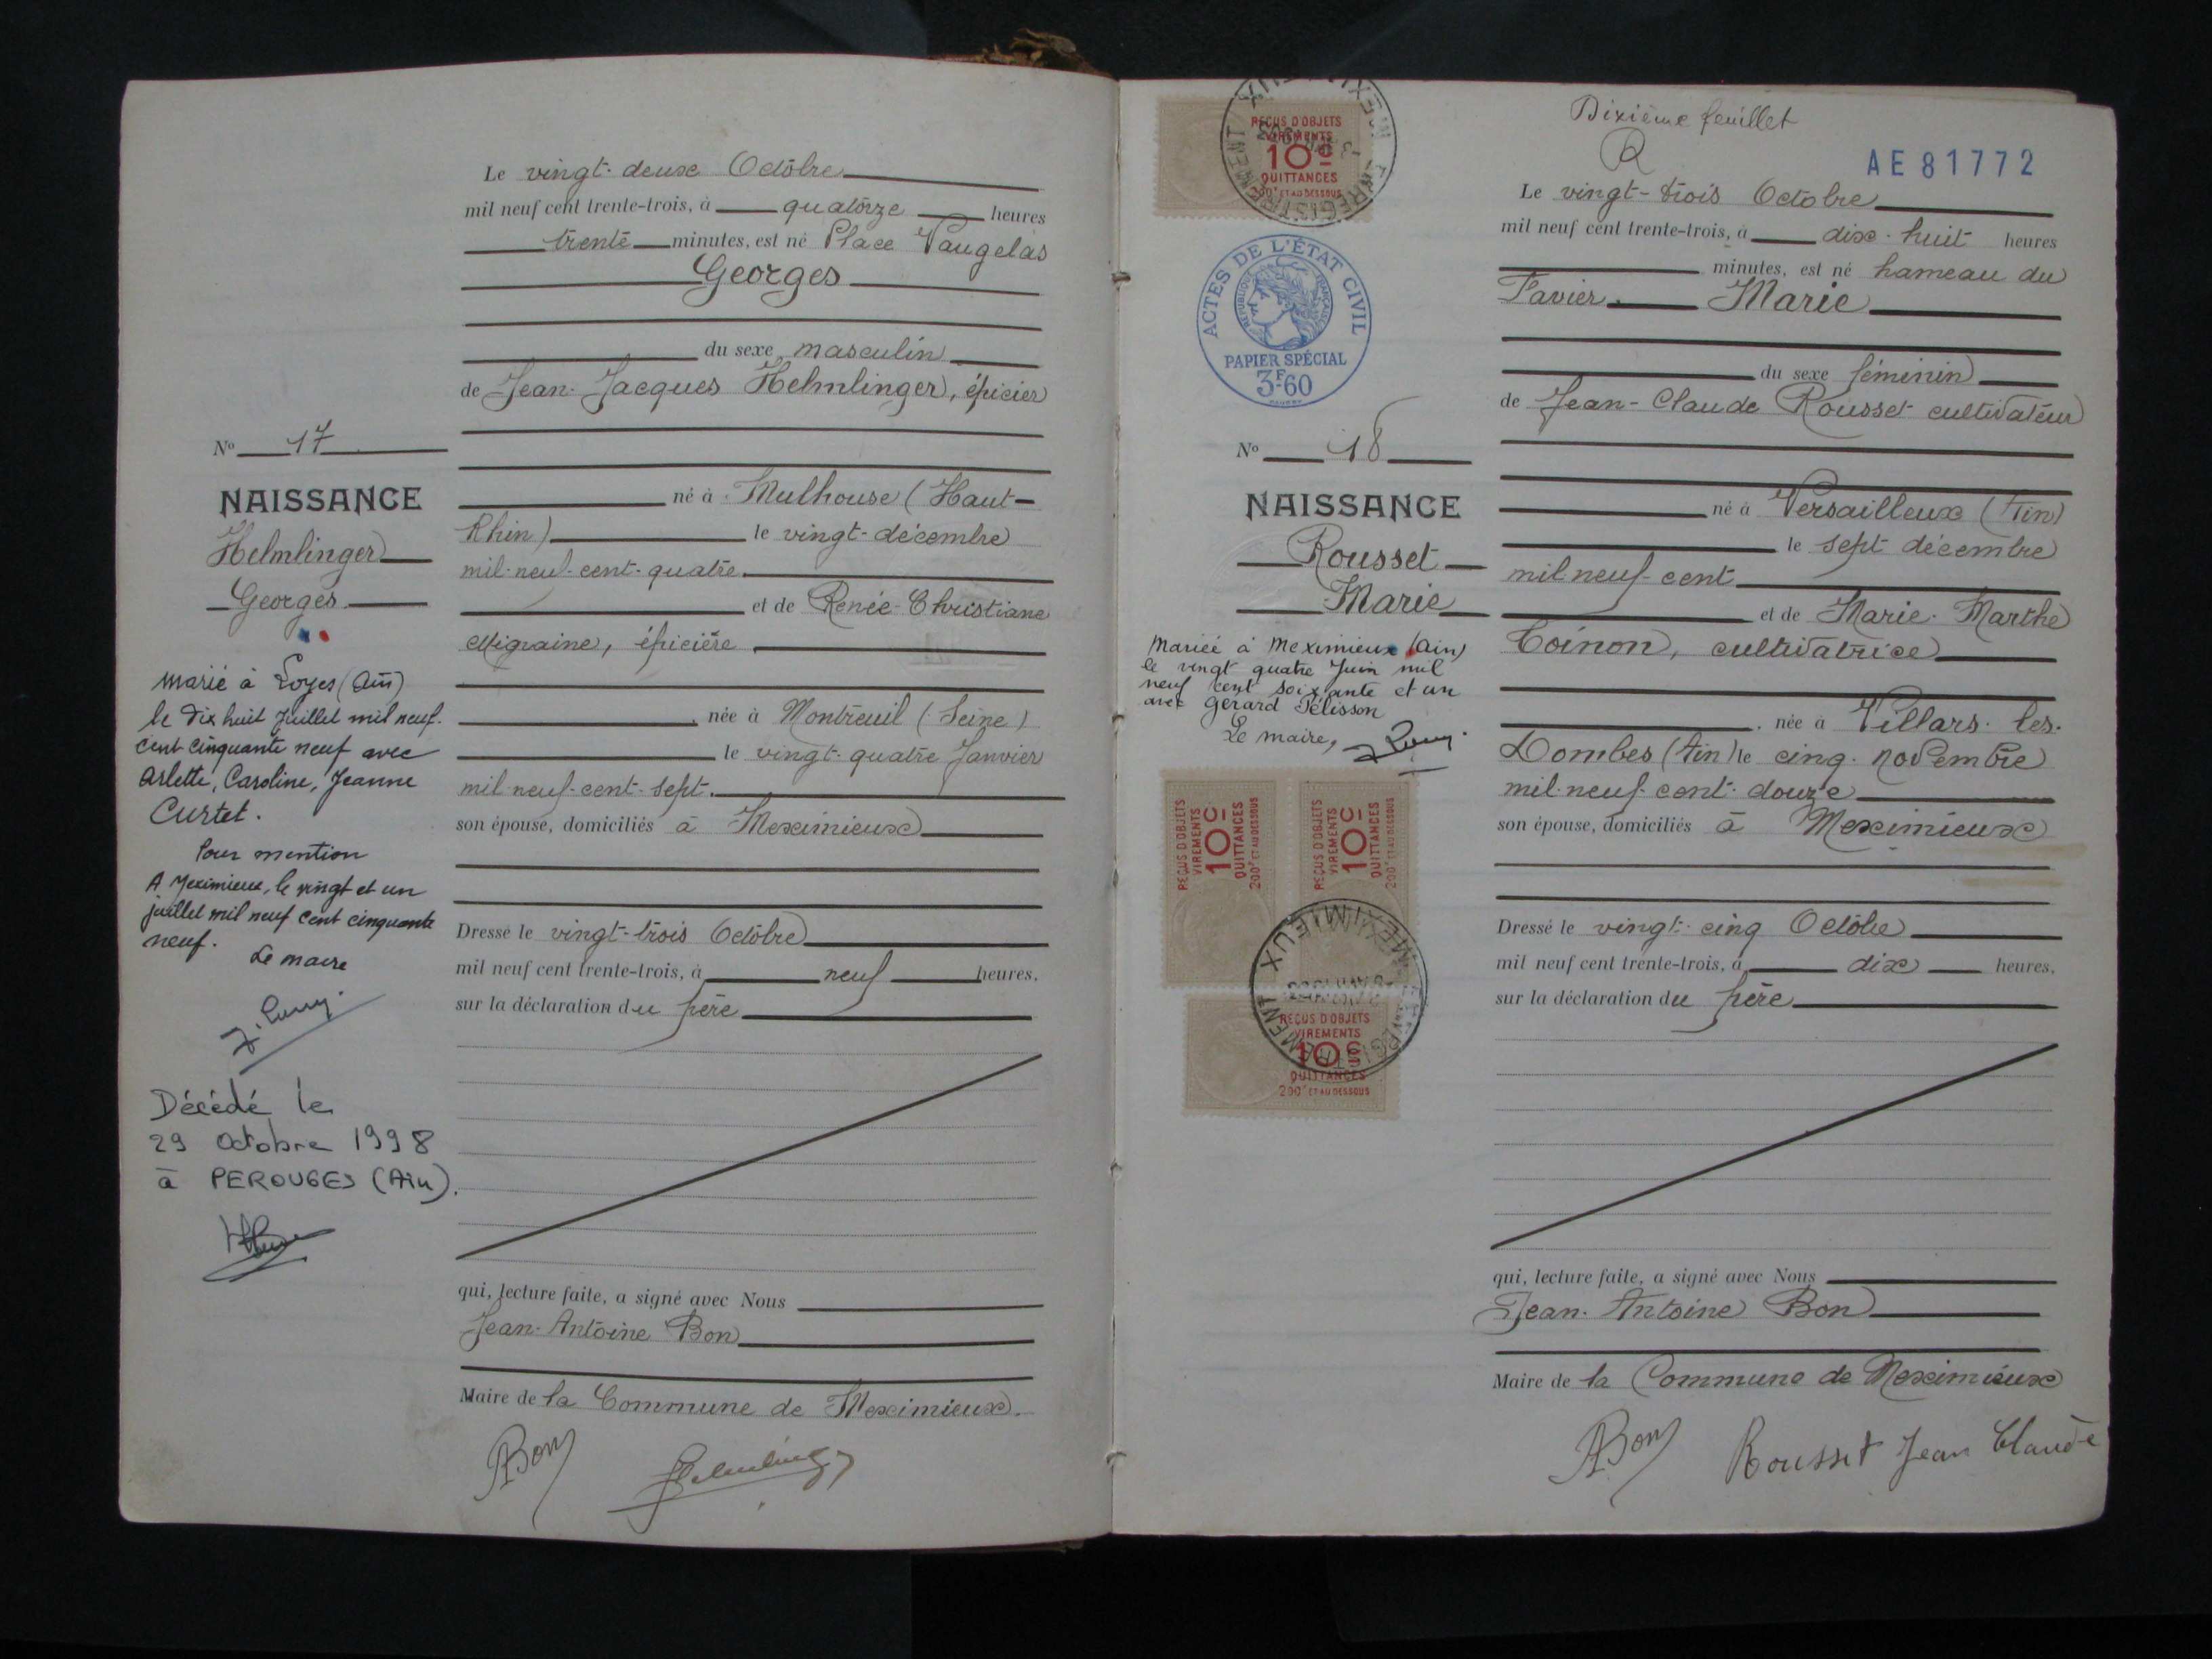 Le vingt-deux Octobre
mil neuf cent trente-trois, à quatorze heures
trente minutes, est né Place Vaugelas
Georges
du sexe masculin
de Jean-Jacques Helmlinger, épicier
né à Mulhouse (Haut-
Rhin) le vingt-décembre
mil-neuf-cent-quatre
et de Renée-Christiane
Migraine, épicière
née à Montreuil (Seine)
le vingt-quatre Janvier
mil-neuf-cent-sept
son épouse, domiciliés à Meximieux
Dressé le vingt-trois Octobre
mil neuf cent trente-trois, à neuf heures,
sur la déclaration du père
qui, lecture faite, a signé avec Nous
Jean-Antoine Bon
Maire de la Commune de Meximieux.
ABon
Helmlinger
No 17
NAISSANCE
Helmlinger
Georges
marié à Loyes (Ain)
le dix huit Juillet mil neuf.
cent cinquante neuf avec
Arlette, Caroline, Jeanne
Curtet.
Pour mention
A Meximieux, le vingt et un
juillet mil neuf cent cinquante
neuf.
Le maire
Décédé le
29 Octobre 1998
à PEROUGES (Ain).
Dixième feuillet
AE81772
Le vingt-trois Octobre
mil neuf cent trente-trois, à dix-huit heures
minutes, est né hameau du
Favier Marie
du sexe féminin
de Jean-Claude Rousset cultivateur
né à Versailleux (Ain)
le sept décembre
mil neuf-cent
et de Marie-Marthe
Coinon, cultivatrice
née à Villars-les-
Dombes (Ain) le cinq-novembre
mil-neuf-cent-douze
son épouse, domiciliés à Meximieux
Dressé le vingt-cinq Octobre
mil neuf cent trente-trois, à dix heures,
sur la déclaration du père
qui, lecture faite, a signé avec Nous
Jean-Antoine Bon
Maire de la Commune de Meximieux
ABon
Rousset Jean Claude
No 18
NAISSANCE
Rousset
Marie
Mariée à Meximieux (Ain)
le vingt quatre Juin mil
neuf cent soixante et un
avec Gérard Pélisson
Le maire,
REÇUS D'OBJETS
VIREMENTS
10c
QUITTANCES
ET AU DESSOUS
ENREGISTREMENT
MEXIMIEUX
ACTES DE L'ÉTAT CIVIL
RÉPUBLIQUE FRANÇAISE
PAPIER SPÉCIAL
3F-60
REÇUS D'OBJETS
VIREMENTS
10c
QUITTANCES
200F ET AU DESSOUS
REÇUS D'OBJETS
VIREMENTS
10c
QUITTANCES
200F ET AU DESSOUS
ENREGISTREMENT
MEXIMIEUX
REÇUS D'OBJETS
VIREMENTS
10c
QUITTANCES
200F ET AU DESSOUS